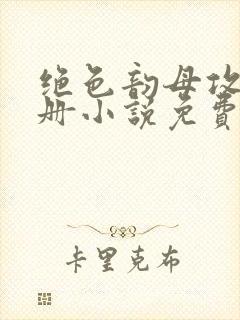 绝色韵母攻
册小说免費
卡里克布